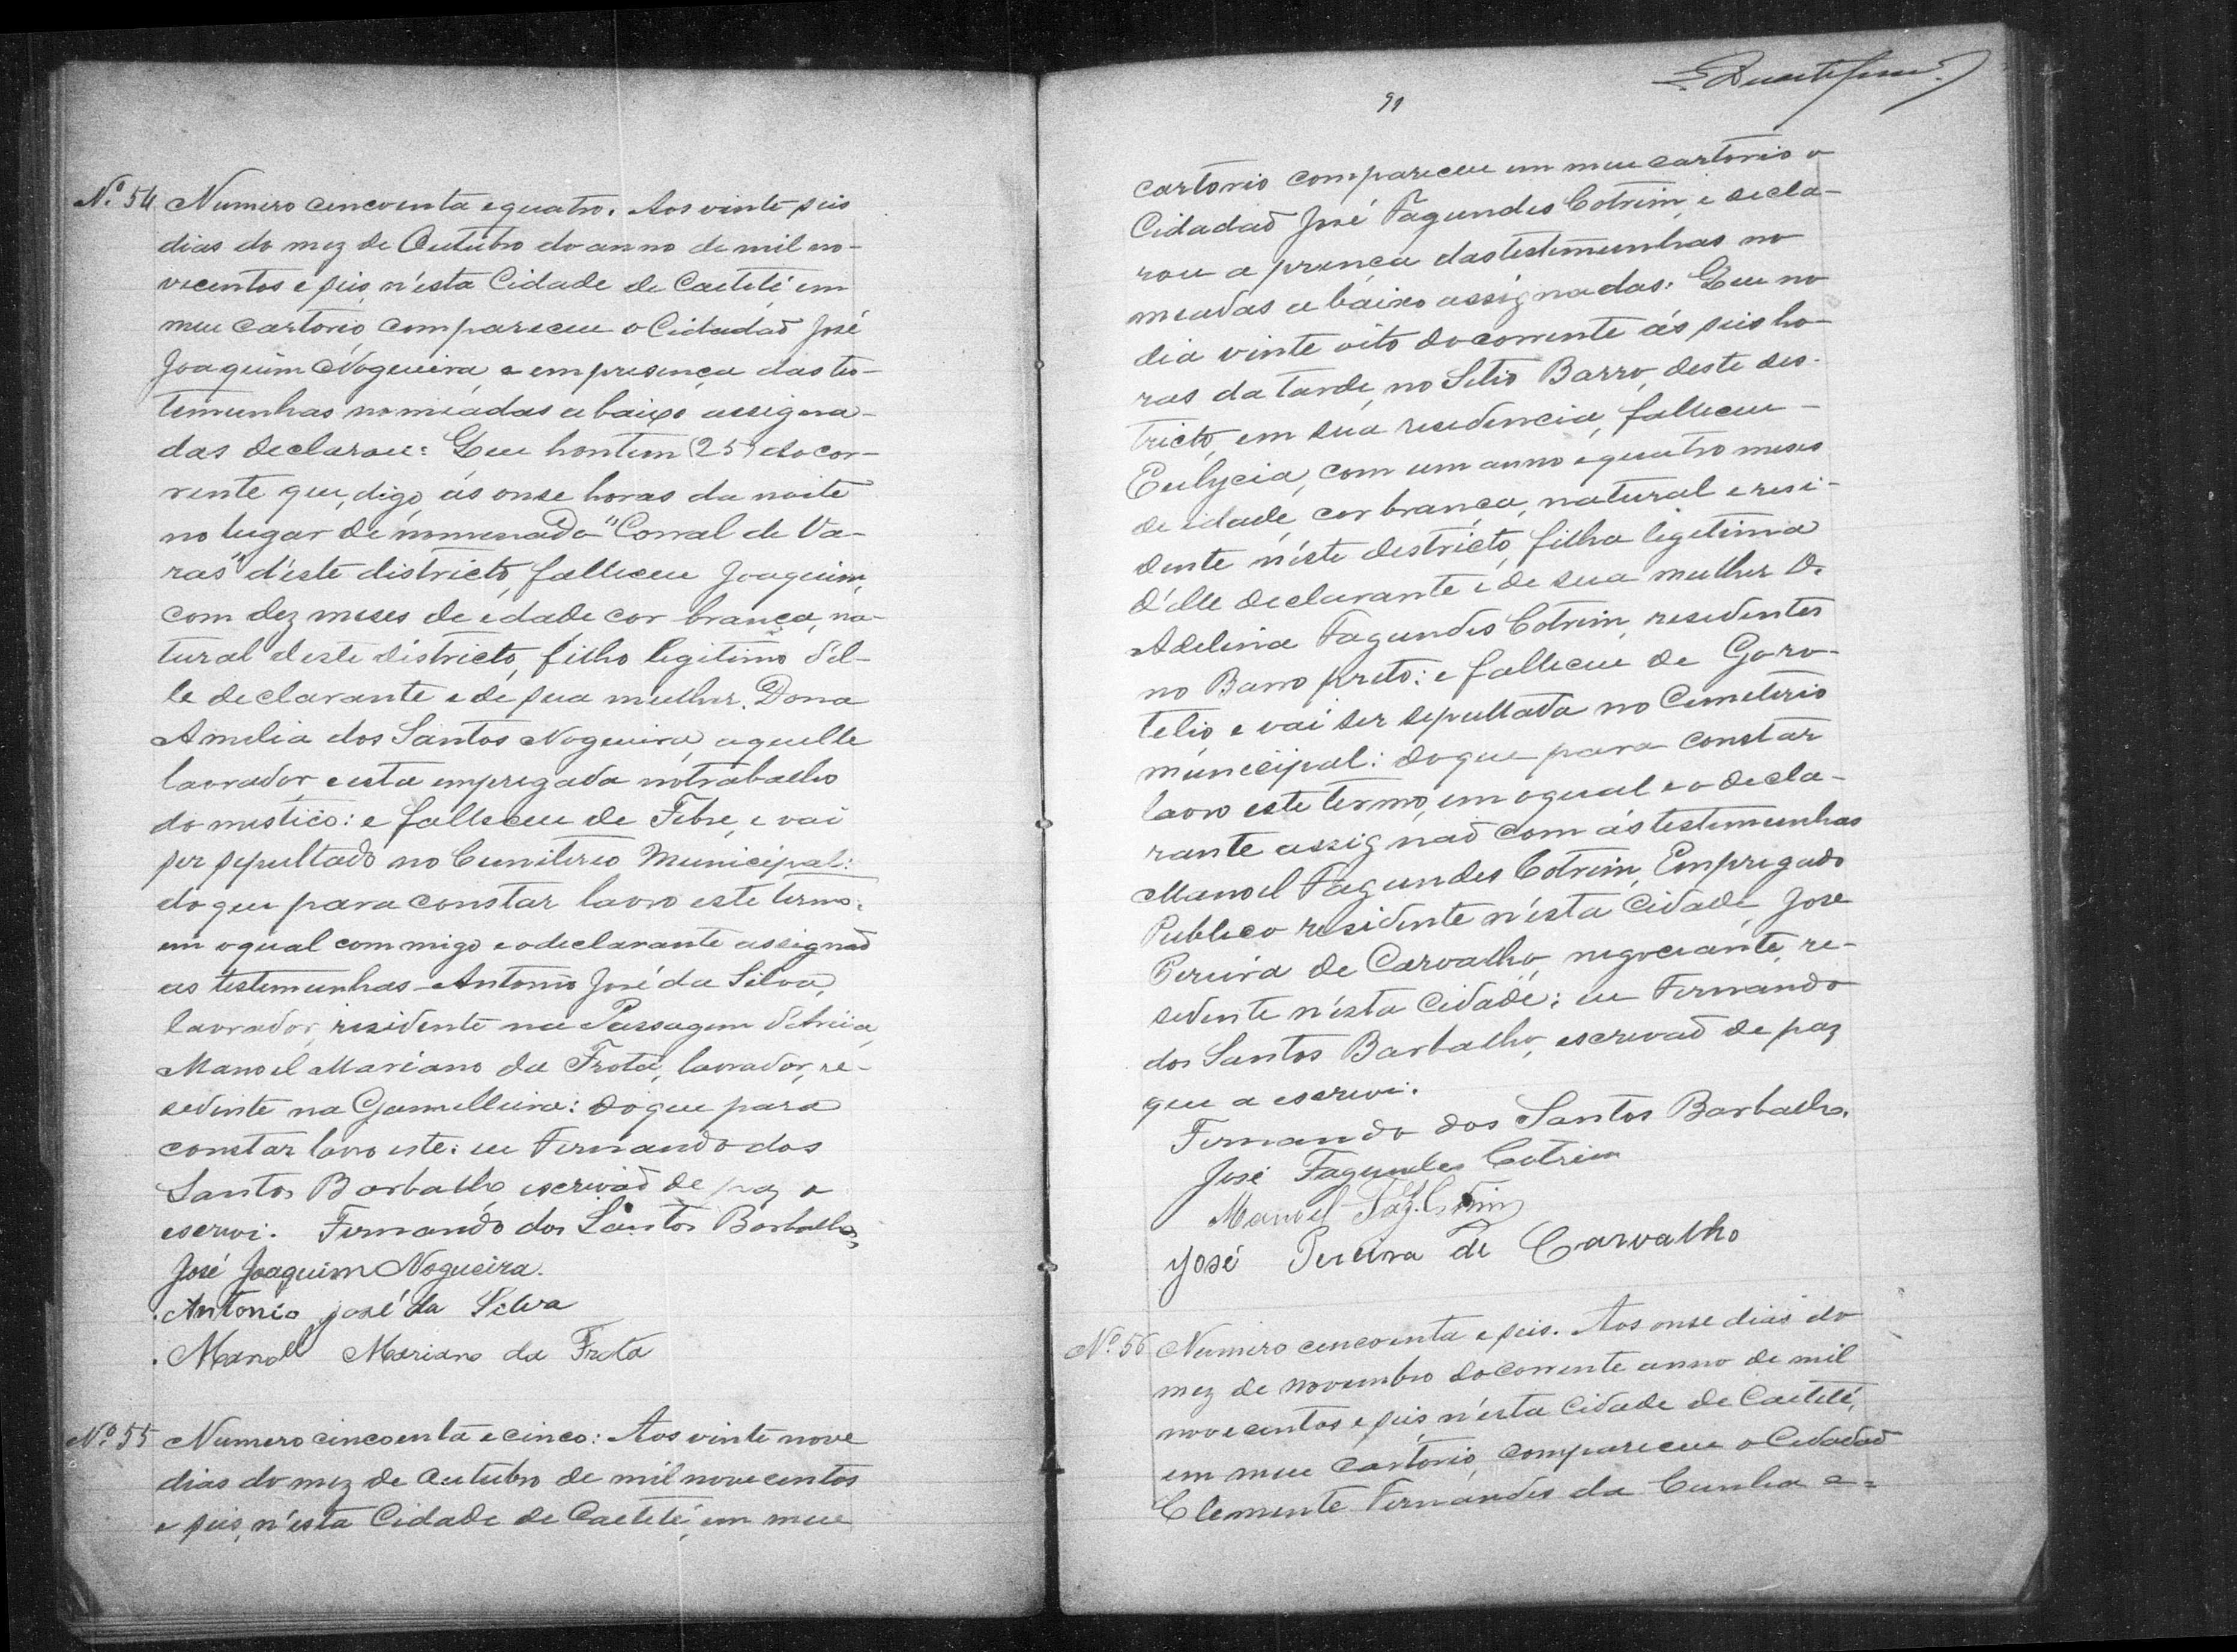 Nº 54 Numero cencoenta e quatro. Aos vinte seis
dias do mez de Outubro do anno de mil no-
vecentos e seis, n'esta Cidade de Caeteté em
meu cartorio, compareceu o Cidadaõ José
Joaquim Nogueira, e em presença das tes-
temunhas nomeadas abaixo assigna-
das declarou: Que hontem (25) do cor-
rente que, digo, ás onse horas da noite
no lugar denomenado "Corral de Va-
ras" d'este districto, falleceu Joaquim,
com dez meses de edade cor branca, na-
tural deste districto, filho legitimo del-
le declarante e de sua mulher, Dona
Amelia dos Santos Nogueira, aquelle
lavrador, e esta empregada no trabalho
domestico: e falleceu de Febre, e vai
ser sepultado no Cemiterio Municipal:
do que para constar lavro este termo.
em o qual commigo e o declarante assignaõ
as testemunhas Antonio José da Silva,
lavrador, residente na Passagem
Manoel Mariano da Frota, lavrador, re-
sedente na Gamelleira: do que para
constar lavro este: eu Fernando dos
Santos Barbalho escrivaõ de paz o
escrevi. Fernando dos Santos Barbalho
José Joaquim Nogueira.
Antonio josé da Silva
Manoel Mariano da Frota
Nº 55 Numero cincoenta e cinco: Aos vinte nove
dias do mez de Outubro de mil nove centos
e seis, n'esta Cidade de Caeteté, em meu
91
cartorio compareceu em meu cartorio o
Cidadaõ José Fagundes Cotrim, e decla-
rou a prença das testemunhas no
meadas abaixo assignadas: Que no
dia vinte oito do corrente ás seis ho-
ras da tarde, no Setio Barro, deste des-
tricto, em sua residencia, falleceu
Eulycia, com um anno e quatro meses
de idade, cor branca, natural e resi-
dente n'este destricto, filha legitima
d'elle declarante e de sua mulher D.
Adelina Fagundes Cotrim, residentes
no Barro preto: e falleceu de Garo-
telio, e vai ser sepultada no Cemeterio
municipal: do que para constar
lavro este termo, em o qual e o decla-
rante assignaõ com ás testemunhas
Manoel Fagundes Cotrim, Empregado
Publico residente n'esta Cidade, Jose
Pereira de Carvalho, negociante, re-
sedente n'esta Cidade; eu Fernando
dos Santos Barbalho, escrevaõ de paz
que a escrevi.
Fernando dos Santos Barbalho.
José Fagundes Cotrim
Manoel Fag. Cotrim
José Pereira de Carvalho
Nº 56 Numero cencoenta e seis. Aos onse dias do
mez de novembro do corrente anno de mil
novecentos e seis, n'esta Cidade de Caeteté,
em meu Cartorio, compareceu o Cedadaõ
Clemente Fernandes da Cunha e=